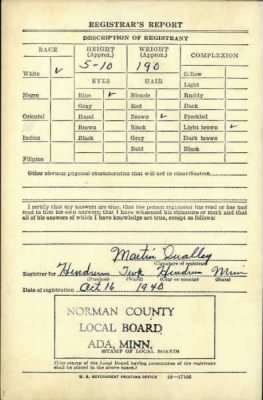 REGISTRAR'S REPORT
DESCRIPTION OF REGISTRANT
RACE HEIGHT (Approx.) WEIGHT (Approx.) COMPLEXION
White ✓ 5-10 190 Sallow
EYES HAIR Light
Negro Blue ✓ Blonde Ruddy
Gray Red Dark
Oriental Hazel Brown ✓ Freckled
Brown Black Light brown ✓
Indian Black Gray Dark brown
Bald Black
Filipino
Other obvious physical characteristics that will aid in identification
I certify that my answers are true; that the person registered has read or has had
read to him his own answers; that I have witnessed his signature or mark and that
all of his answers of which I have knowledge are true, except as follows:
Martin Qualley
(Signature of registrar)
Registrar for Hendrum Twp Hendrum Minn
(Precinct) (City or county) (State)
Date of registration Oct 16 1940
NORMAN COUNTY
LOCAL BOARD
ADA, MINN.
(STAMP OF LOCAL BOARD)
(The stamp of the Local Board having jurisdiction of the registrant
shall be placed in the above space.)
U. S. GOVERNMENT PRINTING OFFICE 16-17105